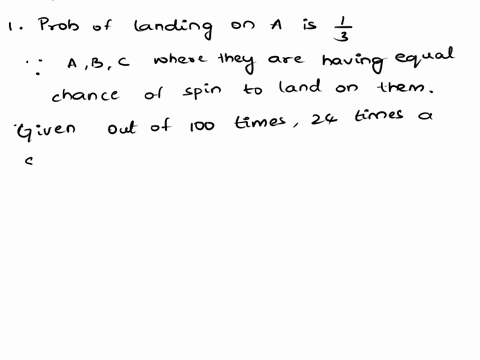 1. Prob of landing on A is 1/3
∵ A, B, C where they are having equal
chance of spin to land on them.
Given out of 100 times, 24 times a